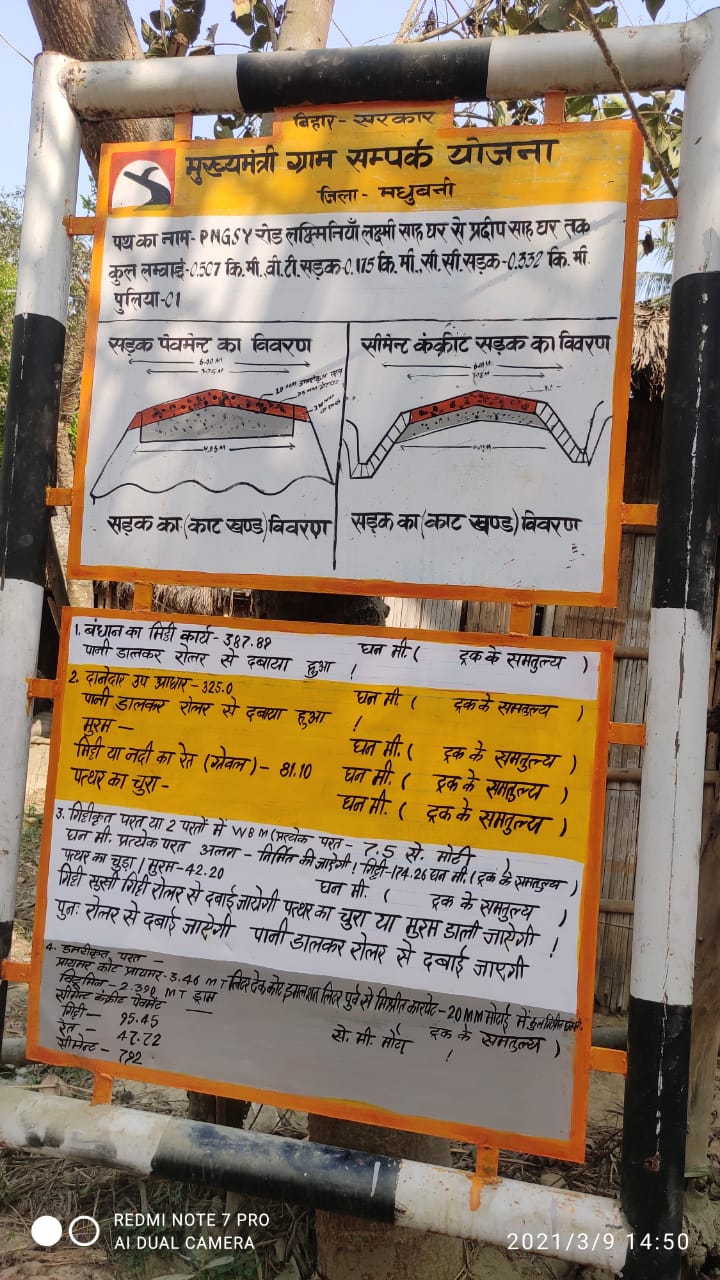 बिहार- सरकार
मुख्यमंत्री ग्राम सम्पर्क योजना
जिला - मधुबनी
पथ का नाम- PMGSY रोड लक्ष्मिनियाँ लक्ष्मी साह घर से प्रदीप साह घर तक
कुल लम्बाई-0.507 कि.मी., बी.टी. सड़क-0.175 कि.मी., सी.सी. सड़क-0.332 कि.मी.
पुलिया-01
सड़क पेवमेन्ट का विवरण
सड़क का (काट खण्ड) विवरण
सीमेन्ट कंक्रीट सड़क का विवरण
सड़क का (काट खण्ड) विवरण
1. बंधान का मिट्टी कार्य- 387.88 घन मी. ( ट्रक के समतुल्य )
पानी डालकर रोलर से दबाया हुआ !
2. दानेदार उप आधार-325.0 घन मी. ( ट्रक के समतुल्य )
पानी डालकर रोलर से दबाया हुआ !
मुरम- घन मी. ( ट्रक के समतुल्य )
मिट्टी या नदी का रेत (ग्रेवल)- 81.10 घन मी. ( ट्रक के समतुल्य )
पत्थर का चुरा- घन मी. ( ट्रक के समतुल्य )
3. गिट्टीकृत परत या 2 परतों में WBM (प्रत्येक परत- 7.5 से. मोटी )
घन मी. प्रत्येक परत अलग - निर्मित की जाऐगी ! गिट्टी-174.26 घन मी. ( ट्रक के समतुल्य )
पत्थर का चुड़ा / मुरम-42.20 घन मी. ( ट्रक के समतुल्य )
गिट्टी सुखी गिट्टी रोलर से दबाई जायेगी पत्थर का चुरा या मुरम डाली जाऐगी !
पुनः रोलर से दबाई जाऐगी पानी डालकर रोलर से दबाई जाएगी
4. डामरीकृत परत -
प्राथमर कोट प्रायमर-3.46 MT लिटर टेक कोट इमलशन लिटर पुर्व से मिश्रीत कारपेट-20MM मोटाई में
बिटुमिन- 2.390 MT ड्राम
सीमेन्ट कंक्रीट पेवमेंट से. मी. मोटी ट्रक के समतुल्य )
गिट्टी- 95.45
रेत- 47.72
सीमेन्ट- 792
REDMI NOTE 7 PRO
AI DUAL CAMERA
2021/3/9 14:50